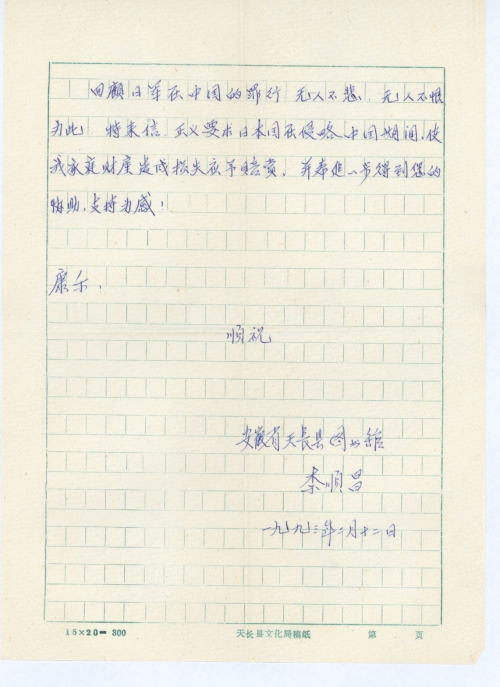 回顾日军在中国的罪行 无人不悲，无人不恨
为此 特来信 正义要求日本国在侵略中国期间，使
我家庭财产造成损失应予赔赏，并奉进一步得到您的
协助，支持为感！
康乐，
顺祝
安徽省天长县图书馆
秦顺昌
一九九三年二月十二日
15×20＝300 天长县文化局稿纸 第 页